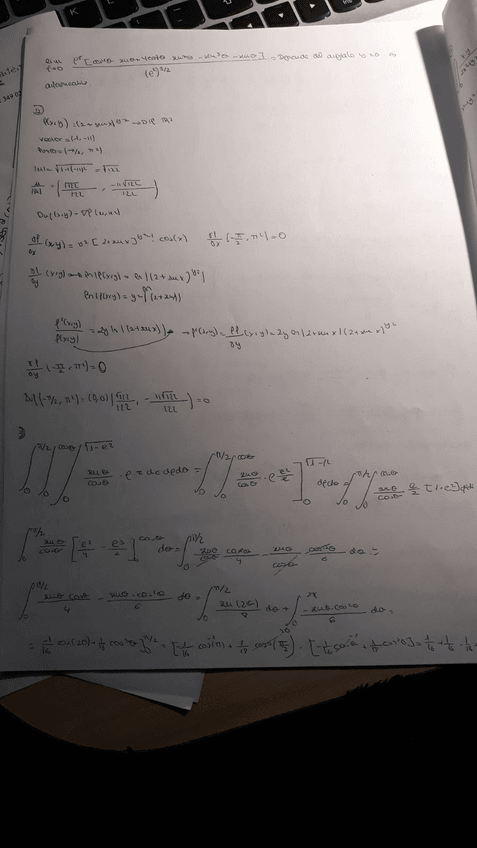 lim ρ→0 ρ⁵[cosθ senθ + 4cosθ sen³θ - sen³θ - senθ] / (ρ²)^(3/2) = Depende del angulo
②
f(x,y) = (2+sen x)^(y²) → D.P. ℝ²
vector = (1,-11)
Punto = (-π/2, π²)
|u| = √(1+(-11)²) = √122
u/|u| = (√122/122, -11√122/122)
∂f/∂x (x,y) = y² [2+sen x]^(y²-1) · cos(x) ∂f/∂x (-π/2, π²) = 0
∂f/∂y (x,y) → ln|f(x,y)| = ln|(2+sen x)^(y²)|
ln|f(x,y)| = y² ln|(2+sen x)|
f'(x,y)/f(x,y) = 2y ln|(2+sen x)| → f'(x,y) = ∂f/∂y (x,y) = 2y ln|2+sen x| (2+sen x)^(y²)
∂f/∂y (-π/2, π²) = 0
Du f(-π/2, π²) = (0,0) (√122/122, -11√122/122) = 0
③
∫₀^(π/2) ∫₀^(cosθ) ∫₀^(√(1-ρ²)) senθ/cosθ · ρ z dz dρ dθ = ∫₀^(π/2) ∫₀^(cosθ) senθ/cosθ · ρ z²/2 ]₀^(√(1-ρ²)) dρ dθ = ∫₀^(π/2) ∫₀^(cosθ) senθ/cosθ ρ/2 [1-ρ²]
∫₀^(π/2) senθ/cosθ [ρ²/4 - ρ³/6]₀^(cosθ) dθ = ∫₀^(π/2) senθ/cosθ cos²θ/4 - senθ/cosθ cos³θ/6 dθ =
∫₀^(π/2) senθ cosθ/4 - senθ·cos²θ/6 dθ = ∫₀^(π/2) sen(2θ)/8 dθ + ∫ -senθ cos²θ/6 dθ =
= -1/16 cos(2θ) + 1/18 cos³θ ]₀^(π/2) = [-1/16 cos(π) + 1/18 cos³(π/2)] - [-1/16 cos 0 + 1/18 cos³0] = 1/16 + 1/16 - 1/18